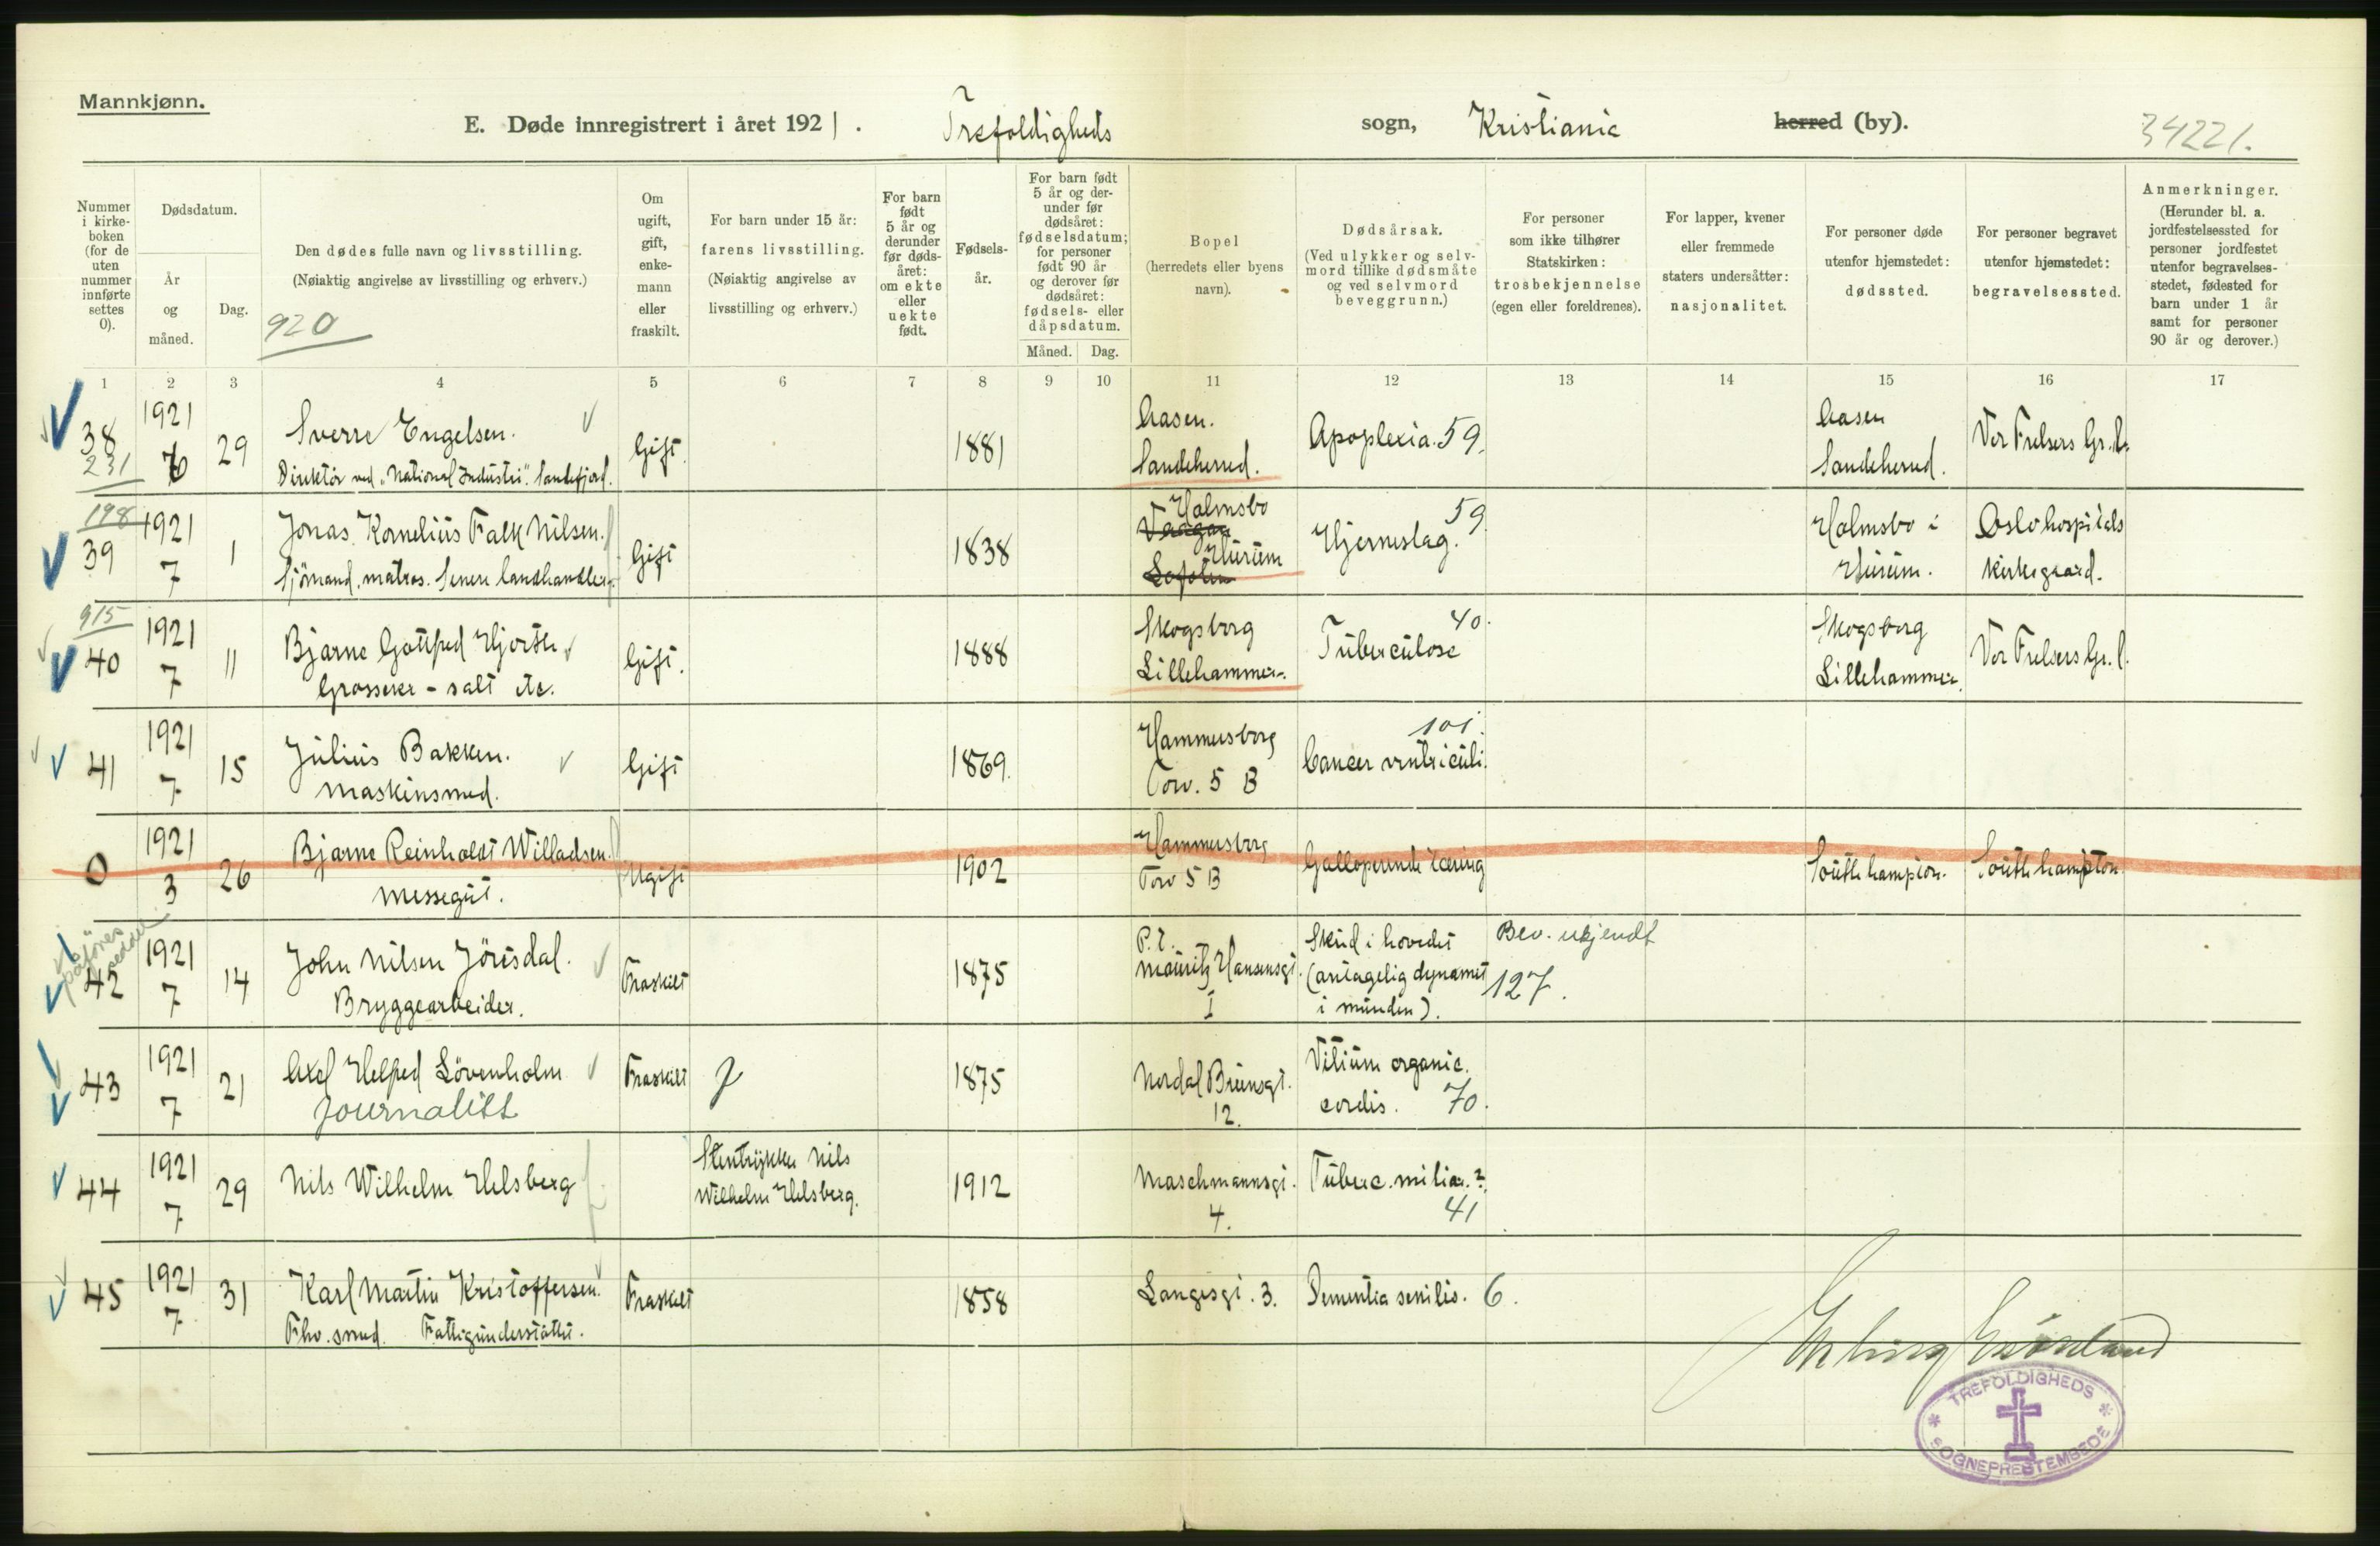 Mannkjønn.
E. Døde innregistrert i året 1921. Trefoldigheds sogn, Kristiania herred (by). 34221.
Nummer i kirke-boken (for de uten nummer innførte settes 0).
Dødsdatum.
År og måned.
Dag.
Den dødes fulle navn og livsstilling.
(Nøiaktig angivelse av livsstilling og erhverv.)
920
Om ugift, gift, enke-mann eller fraskilt.
For barn under 15 år: farens livsstilling.
(Nøiaktig angivelse av livsstilling og erhverv.)
For barn født 5 år og derunder før døds-året: om ekte eller uekte født.
Fødsels-år.
For barn født 5 år og der-under før dødsåret: fødselsdatum; for personer født 90 år og derover før dødsåret: fødsels- eller dåpsdatum.
Måned. Dag.
Bopel
(herredets eller byens navn).
Dødsårsak.
(Ved ulykker og selv-mord tillike dødsmåte og ved selvmord beveggrunn.)
For personer som ikke tilhører Statskirken: trosbekjennelse (egen eller foreldrenes).
For lapper, kvener eller fremmede staters undersåtter: nasjonalitet.
For personer døde utenfor hjemstedet: dødssted.
For personer begravet utenfor hjemstedet: begravelsessted.
Anmerkninger.
(Herunder bl. a. jordfestelsessted for personer jordfestet utenfor begravelses-stedet, fødested for barn under 1 år samt for personer 90 år og derover.)
1 2 3 4 5 6 7 8 9 10 11 12 13 14 15 16 17
38 231 1921 29 Sverre Engelsen. Gift. 1881 Aasen. Apoplexia. 59. Aasen Vor Frelsers Gr.
Direktör ved "National Industri". Sandefjord. Sandeherred. Sandeherred.
198 39 1921 7 1 Jonas Kornelius Falk Nilsen. Gift 1838 Holmsbo Hurum Hjerneslag. 59. Holmsbo i Hurum. Oslo hospitals kirkegaard.
Sjömand, matros. Senere landhandler.
915 40 1921 7 11 Bjarne Gottfred Hjorth Gift. 1888 Skogsborg Lillehammer. Tuberculose 40. Skogsborg Lillehammer. Vor Frelsers Gr.
Grosserer - salt etc.
41 1921 7 15 Julius Bakken. Gift 1869. Hammersborg Torv. 5 B Cancer ventriculi. 101.
Maskinsmed.
0 1921 3 26 Bjarne Reinholdt Willadsen. Ugift 1902 Hammersborg Torv 5 B Galloperende tæring Southhampton. Southhampton.
messegut.
42 1921 7 14 John Nilsen Jörisdal. Fraskilt 1875 P.t. Mauritz Hansensgt. 1 Skud i hovedet (antagelig dynamit i munden). Bev. ukjendt 127.
Bryggearbeider.
43 1921 7 21 Axel Helfred Lövenholm Fraskilt 1875 Nordal Brunsgt. 12. Vitium organic. cordis. 70.
Journalist
44 1921 7 29 Nils Wilhelm Helsberg Stentrykker Nils Wilhelm Helsberg. 1912 Maschmannsgt. 4. Tuberc. miliar. ? 41
45 1921 7 31 Karl Martin Kristoffersen. Fraskilt 1858 Langesgt. 3. Dementia senilis. 6.
Fhv. smed. Fattigunderstöttet.
TREFOLDIGHEDS
SOGNEPRESTEMBEDE